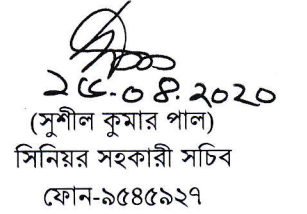 ২৫.০৪.২০২০
(সুশীল কুমার পাল)
সিনিয়র সহকারী সচিব
ফোন-৯৫৪৫৯২৭